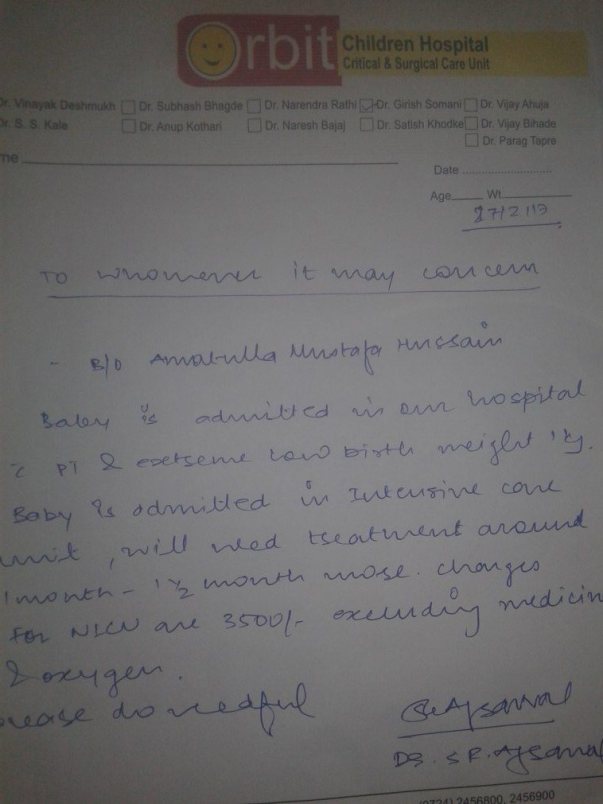 Orbit
Children Hospital
Critical & Surgical Care Unit
Dr. Vinayak Deshmukh Dr. Subhash Bhagde Dr. Narendra Rathi Dr. Girish Somani Dr. Vijay Ahuja
Dr. S. S. Kale Dr. Anup Kothari Dr. Naresh Bajaj Dr. Satish Khodke Dr. Vijay Bihade
Dr. Parag Tapre
me
Date
Age Wt.
To whomever it may concern
- B/O Amatulla Mustafa Hussain
Baby is admitted in our hospital
c PT & extreme low birth weight 1 kg.
Baby is admitted in Intensive care
unit, will need treatment around
1 month - 1 1/2 month more. charges
For NICU are 3500/- excluding medicin
& oxygen.
please do needful
Dr. S R. Ajsawal
(0724) 2456800, 2456900